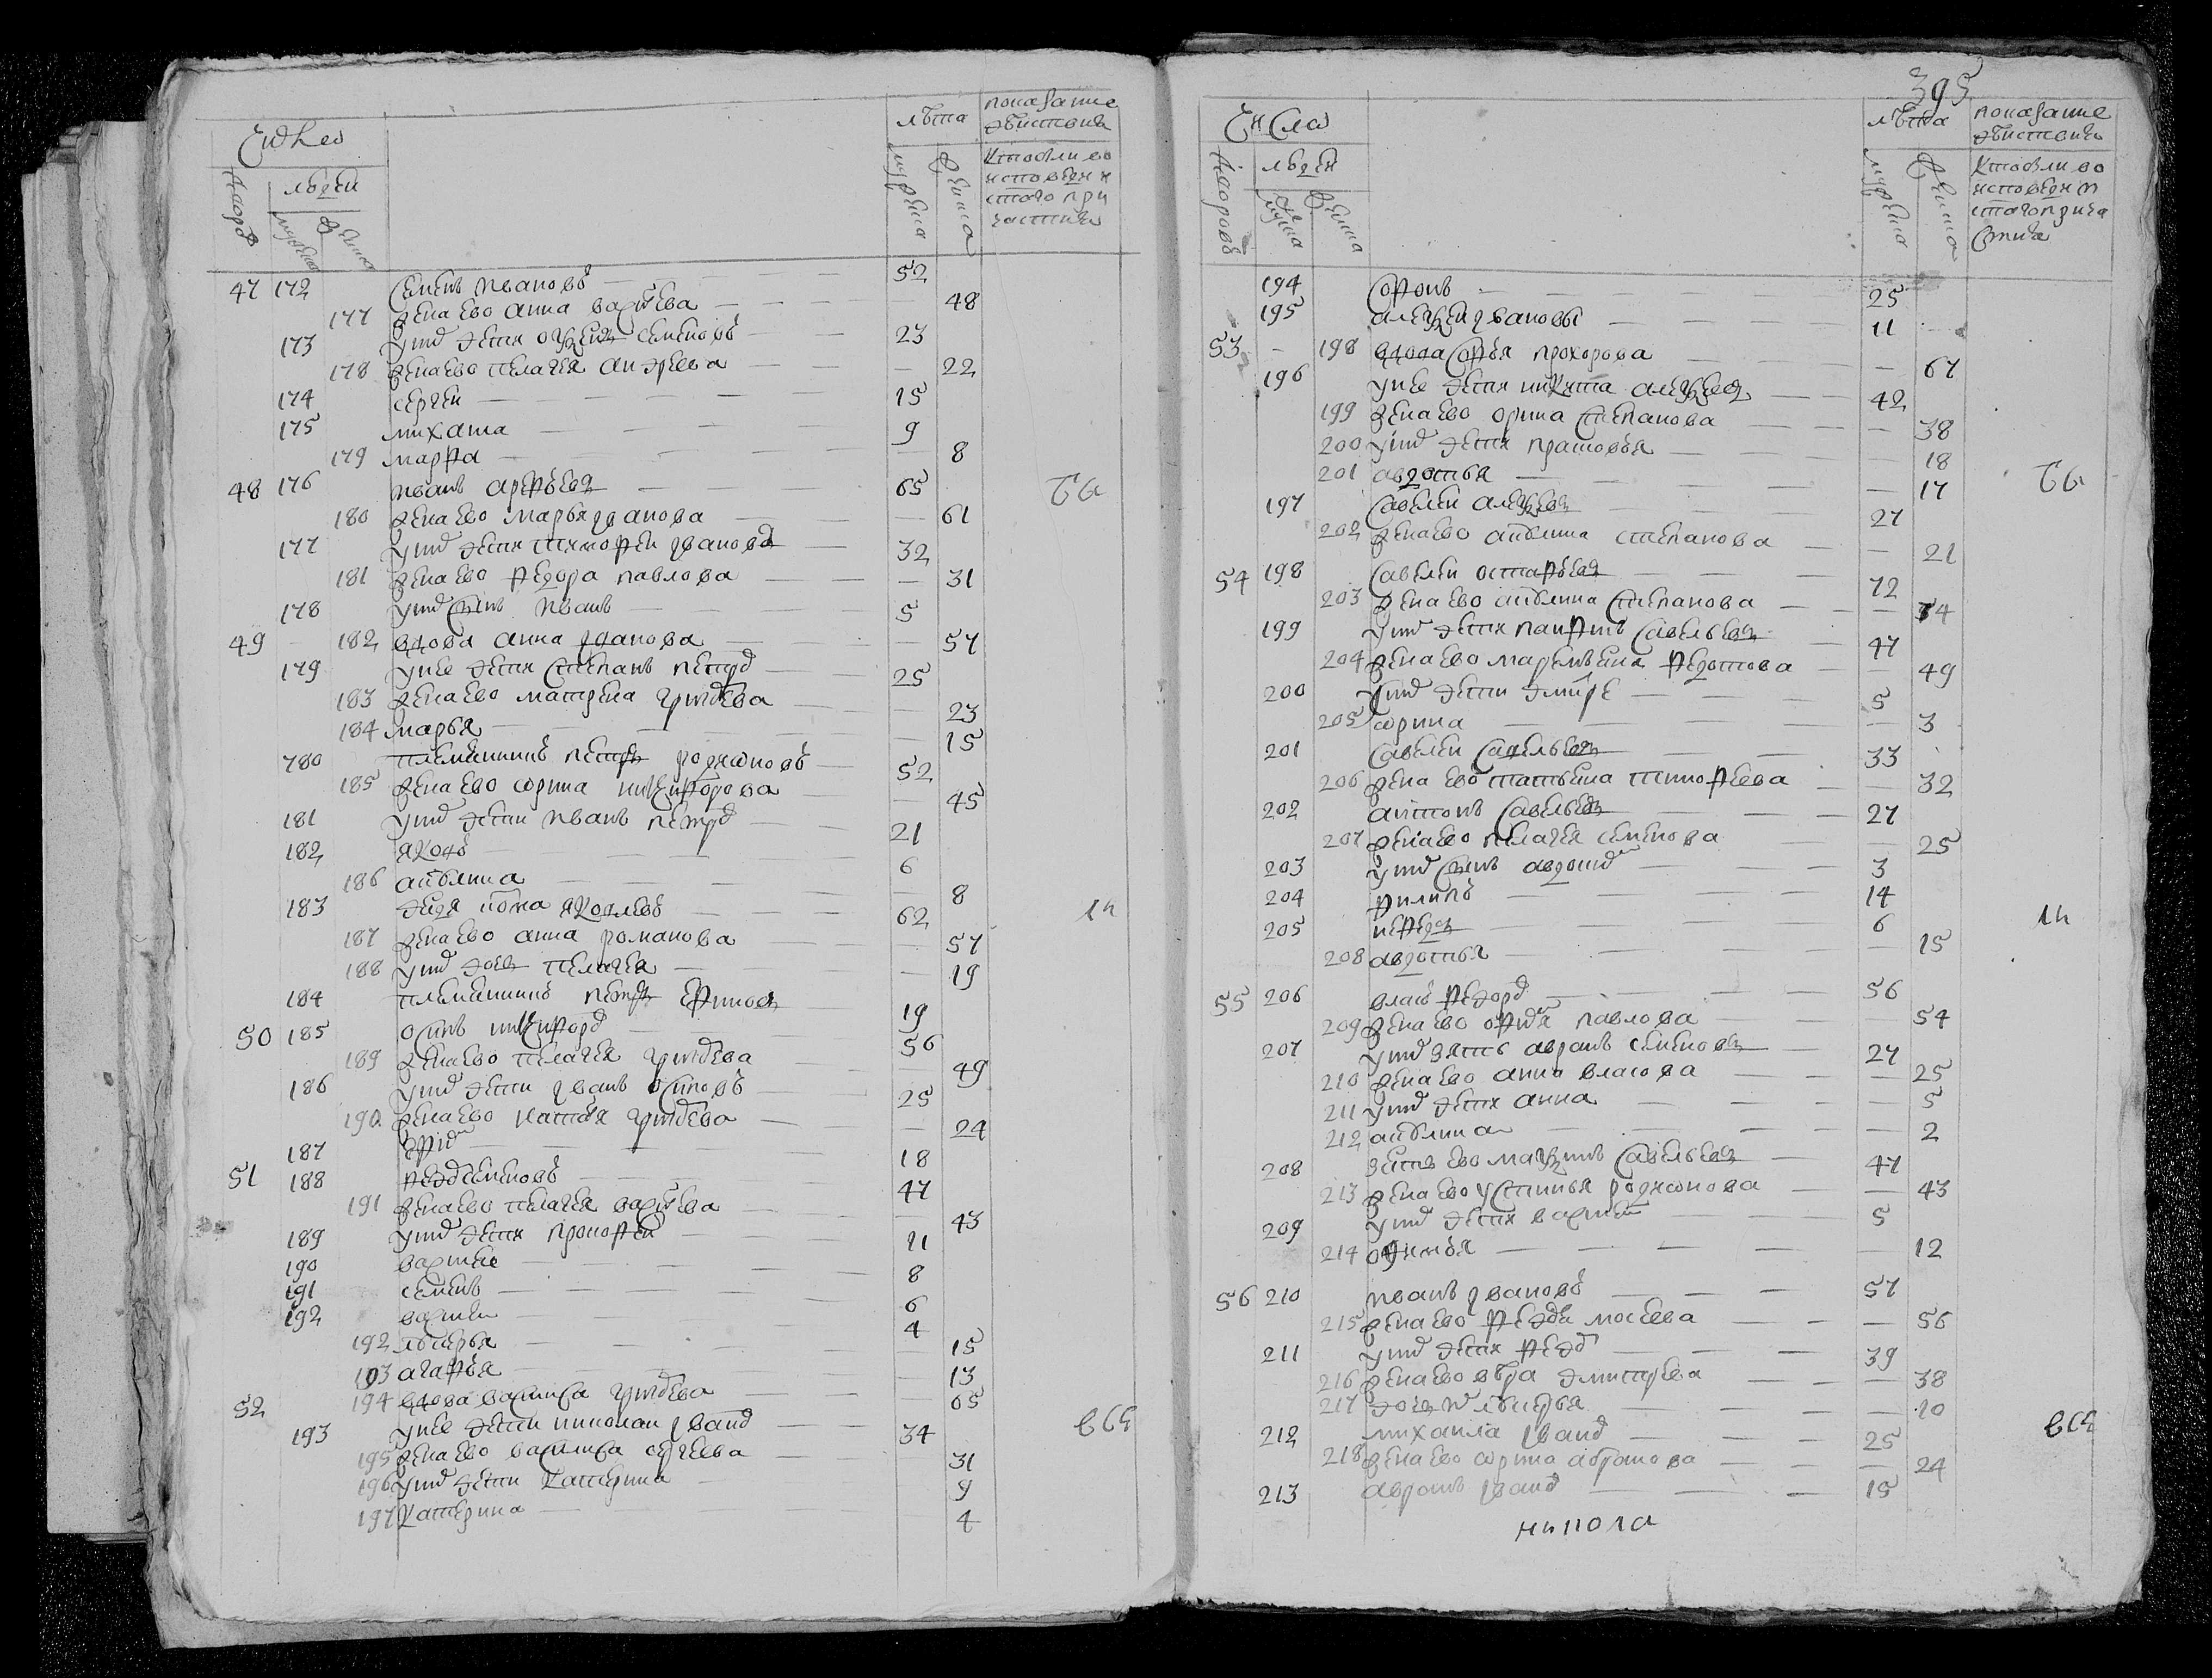 395
Число
лѣта
показание
дѣиствия
дворов
людеи
мужеска
женска
мужеска
женска
кто были во
исповеди и
стаго при
частия
47 172 семенъ ивановъ 52
177 жена ево анна васильева 48
173 у них дети семеновъ 23
178 жена ево пелагея андреева 22
174 сергеи 15
175 михаила 9
179 марфа 8
48 176 иванъ арефьевъ 65
бы
180 жена ево марья иванова 61
177 у них дети тимофеи ивановъ 32
181 жена ево федора павлова 31
178 у них сынъ иванъ 5
49 182 вдова анна иванова 57
179 у нее дети степанъ петров 25
183 жена ево матрена григорьева 23
184 марья 15
180 племянникъ петръ родионовъ 52
185 жена ево орина никифорова 45
181 у них дети иванъ петров 21
182 яковъ 6
186 акулина 8
183 дядя фома яковлевъ 62
ли
187 жена ево анна романова 57
188 у них дочь пелагея 19
184 племянникъ петръ ефимовъ 19
50 185 осипъ никифоров 56
189 жена ево пелагея григорьева 49
186 у них дети иванъ осиповъ 25
190 жена ево наталья григорьева 24
187 ефим 18
51 188 федор семеновъ 47
191 жена ево пелагея васильева 43
189 у них дети прокофеи 11
190 василеи 8
191 семенъ 6
192 василеи 4
192 лукерья 15
193 агафья 13
52 194 вдова василиса григорьева 65
193 у нее дети николаи иванов 34
всѣ
195 жена ево василиса сергеева 31
196 у них дети катерина 9
197 катерина 4
Число
лѣта
показание
дѣиствия
дворовъ
людеи
мужеска
женска
мужеска
женска
кто были во
исповеди и
стаго прича
стия
194 софонъ 25
195 алексеи ивановы 11
53 198 вдова софья прохорова 67
196 у нее дети никита алексеевъ 42
199 жена ево орина степанова 38
200 у них дети прасковья 18
201 авдотья 17
бы
197 савелеи алексеевъ 27
202 жена ево акулина степанова 21
54 198 савелеи остафьевъ 72
203 жена ево акулина степанова 74
199 у них дети панфилъ савельевъ 47
204 жена ево маремьяна федотова 49
200 у них дети дмитреи 5
205 орина 3
201 савелеи савельевъ 33
206 жена ево татьяна тимофеева 32
202 антонъ савельевъ 27
207 жена ево пелагея семенова 25
203 у них сынъ авдоким 3
204 филипъ 14
205 нефедъ 6
ли
208 авдотья 15
55 206 власъ федоров 56
209 жена ево офимя павлова 54
207 у них зять аврамъ семеновъ 27
210 жена ево анна власова 25
211 у них дети анна 5
212 акулина 2
208 зять ево максимъ савельевъ 47
213 жена ево устинья родионова 43
209 у них дети василеи 5
214 офимья 12
56 210 иванъ ивановъ 57
215 жена ево федосья мосеева 56
211 у них дети федор 39
216 жена ево вера дмитреева 38
217 дочь их лукерья 10
212 михаила иванов 25
всѣ
218 жена ево орина абрамова 24
213 аврамъ иванов 15
никола